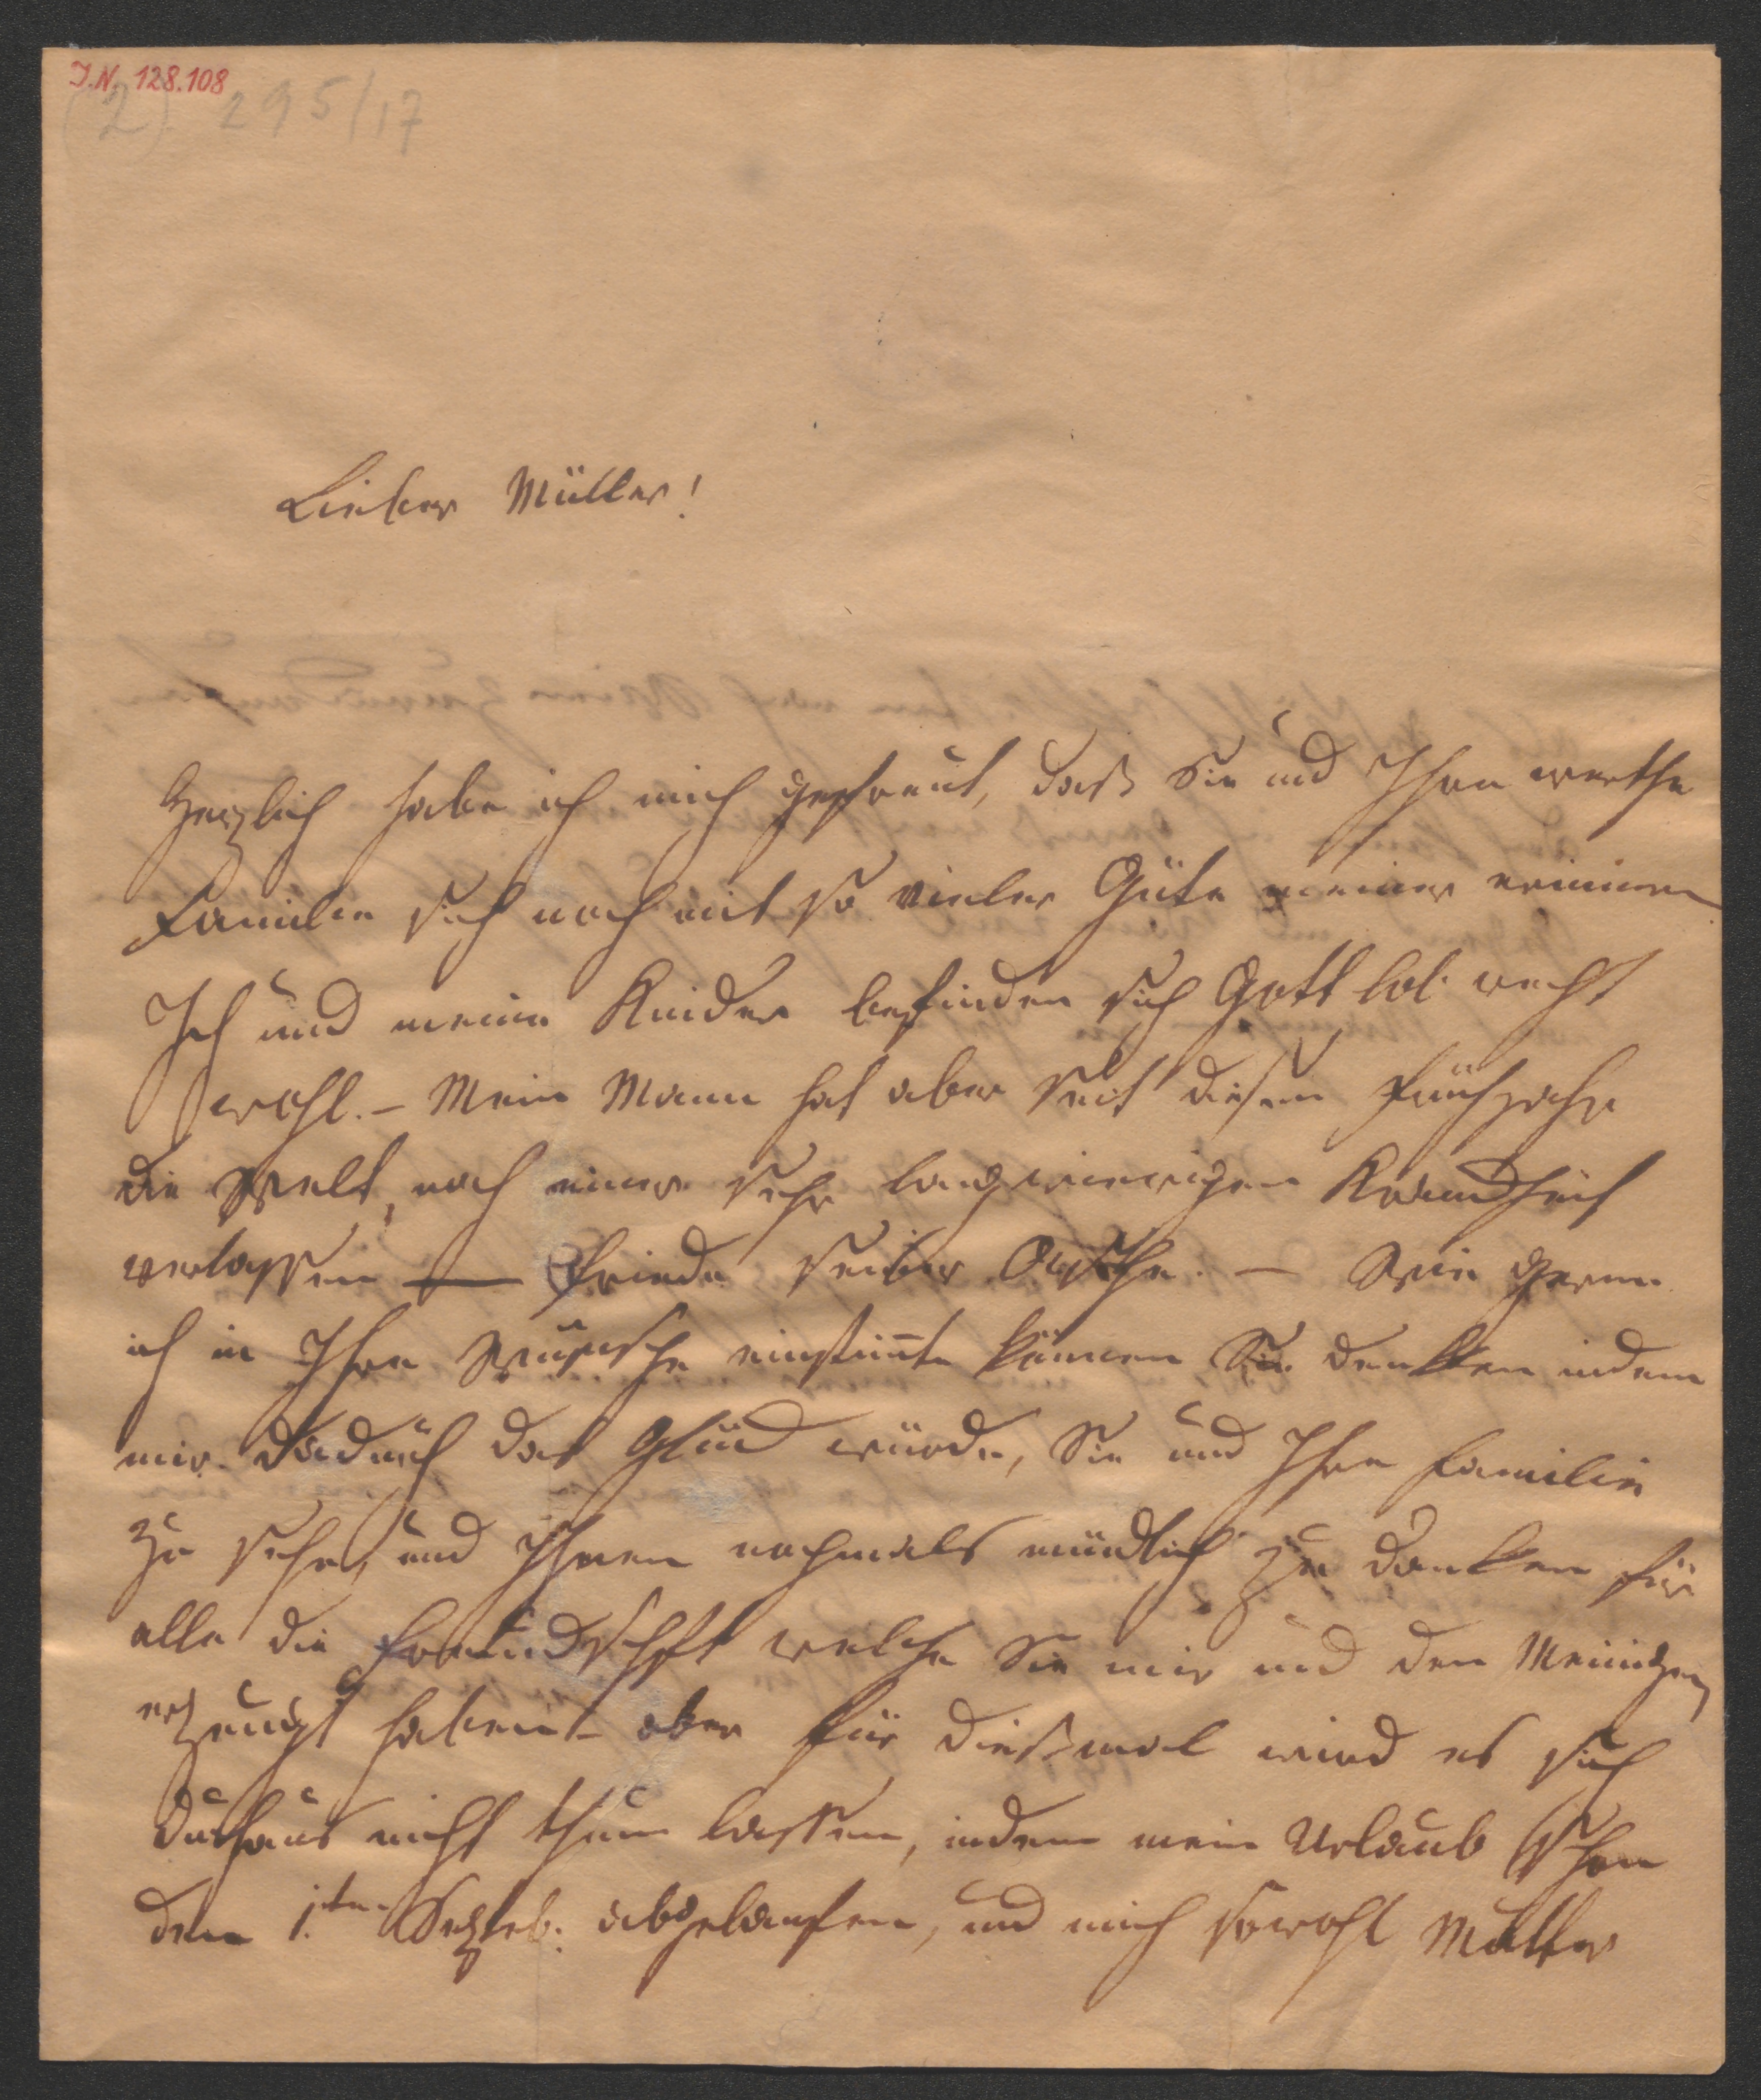 J.N. 128.108
(2) 295/17
Lieber Müller!
Herzlich habe ich mich gefreut, daß Sie und Ihre werthe
Familie sich noch mit so vieler Güte meiner erinnern
Ich und meine Kinder befinden sich Gott lob recht
wohl. – Mein Mann hat aber seit diesem Frühjahr
die Welt, nach einer sehr langwierigen Krankheit
verlassen — Friede seiner Asche. – Wie gerne
ich in Ihre Wünsche einstimte können Sie denken indem
mir dadurch das Glück würde, Sie und Ihre Familie
zu sehen, und Ihnen nochmals mündlich zu danken für
alle die Freundschaft welche Sie mir und den Meinigen
erzeugt haben – aber für dießmal wird es sich
durchaus nicht thun lassen, indem mein Urlaub schon
den 1.ten Septeb: abgelaufen, und mich sowohl Mutter